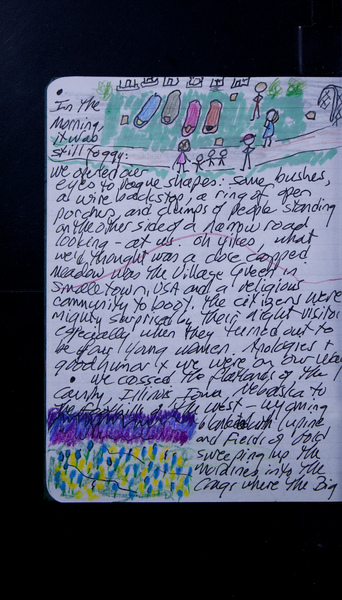 In the
morning,
it was
still foggy.
we opened our
eyes to vague shapes: some bushes,
a wire backstop, a ring of open
porches, and clumps of people standing
on the other side of a narrow road
looking - at us - oh yikes, what
we'd thought was a close cropped
meadow was the village green in
smalltown, USA and a religious
community to boot. The citizens were
mighty surprised by their night visitors
especially when they turned out to
be four young women. Apologies +
good humor & we were on our way
• we crossed the flatlands of the
County, Illinois Iowa Nebraska to
the west - wyoming
blanketed lupine
and fields of gold
sweeping up the
into the
crags where the Big